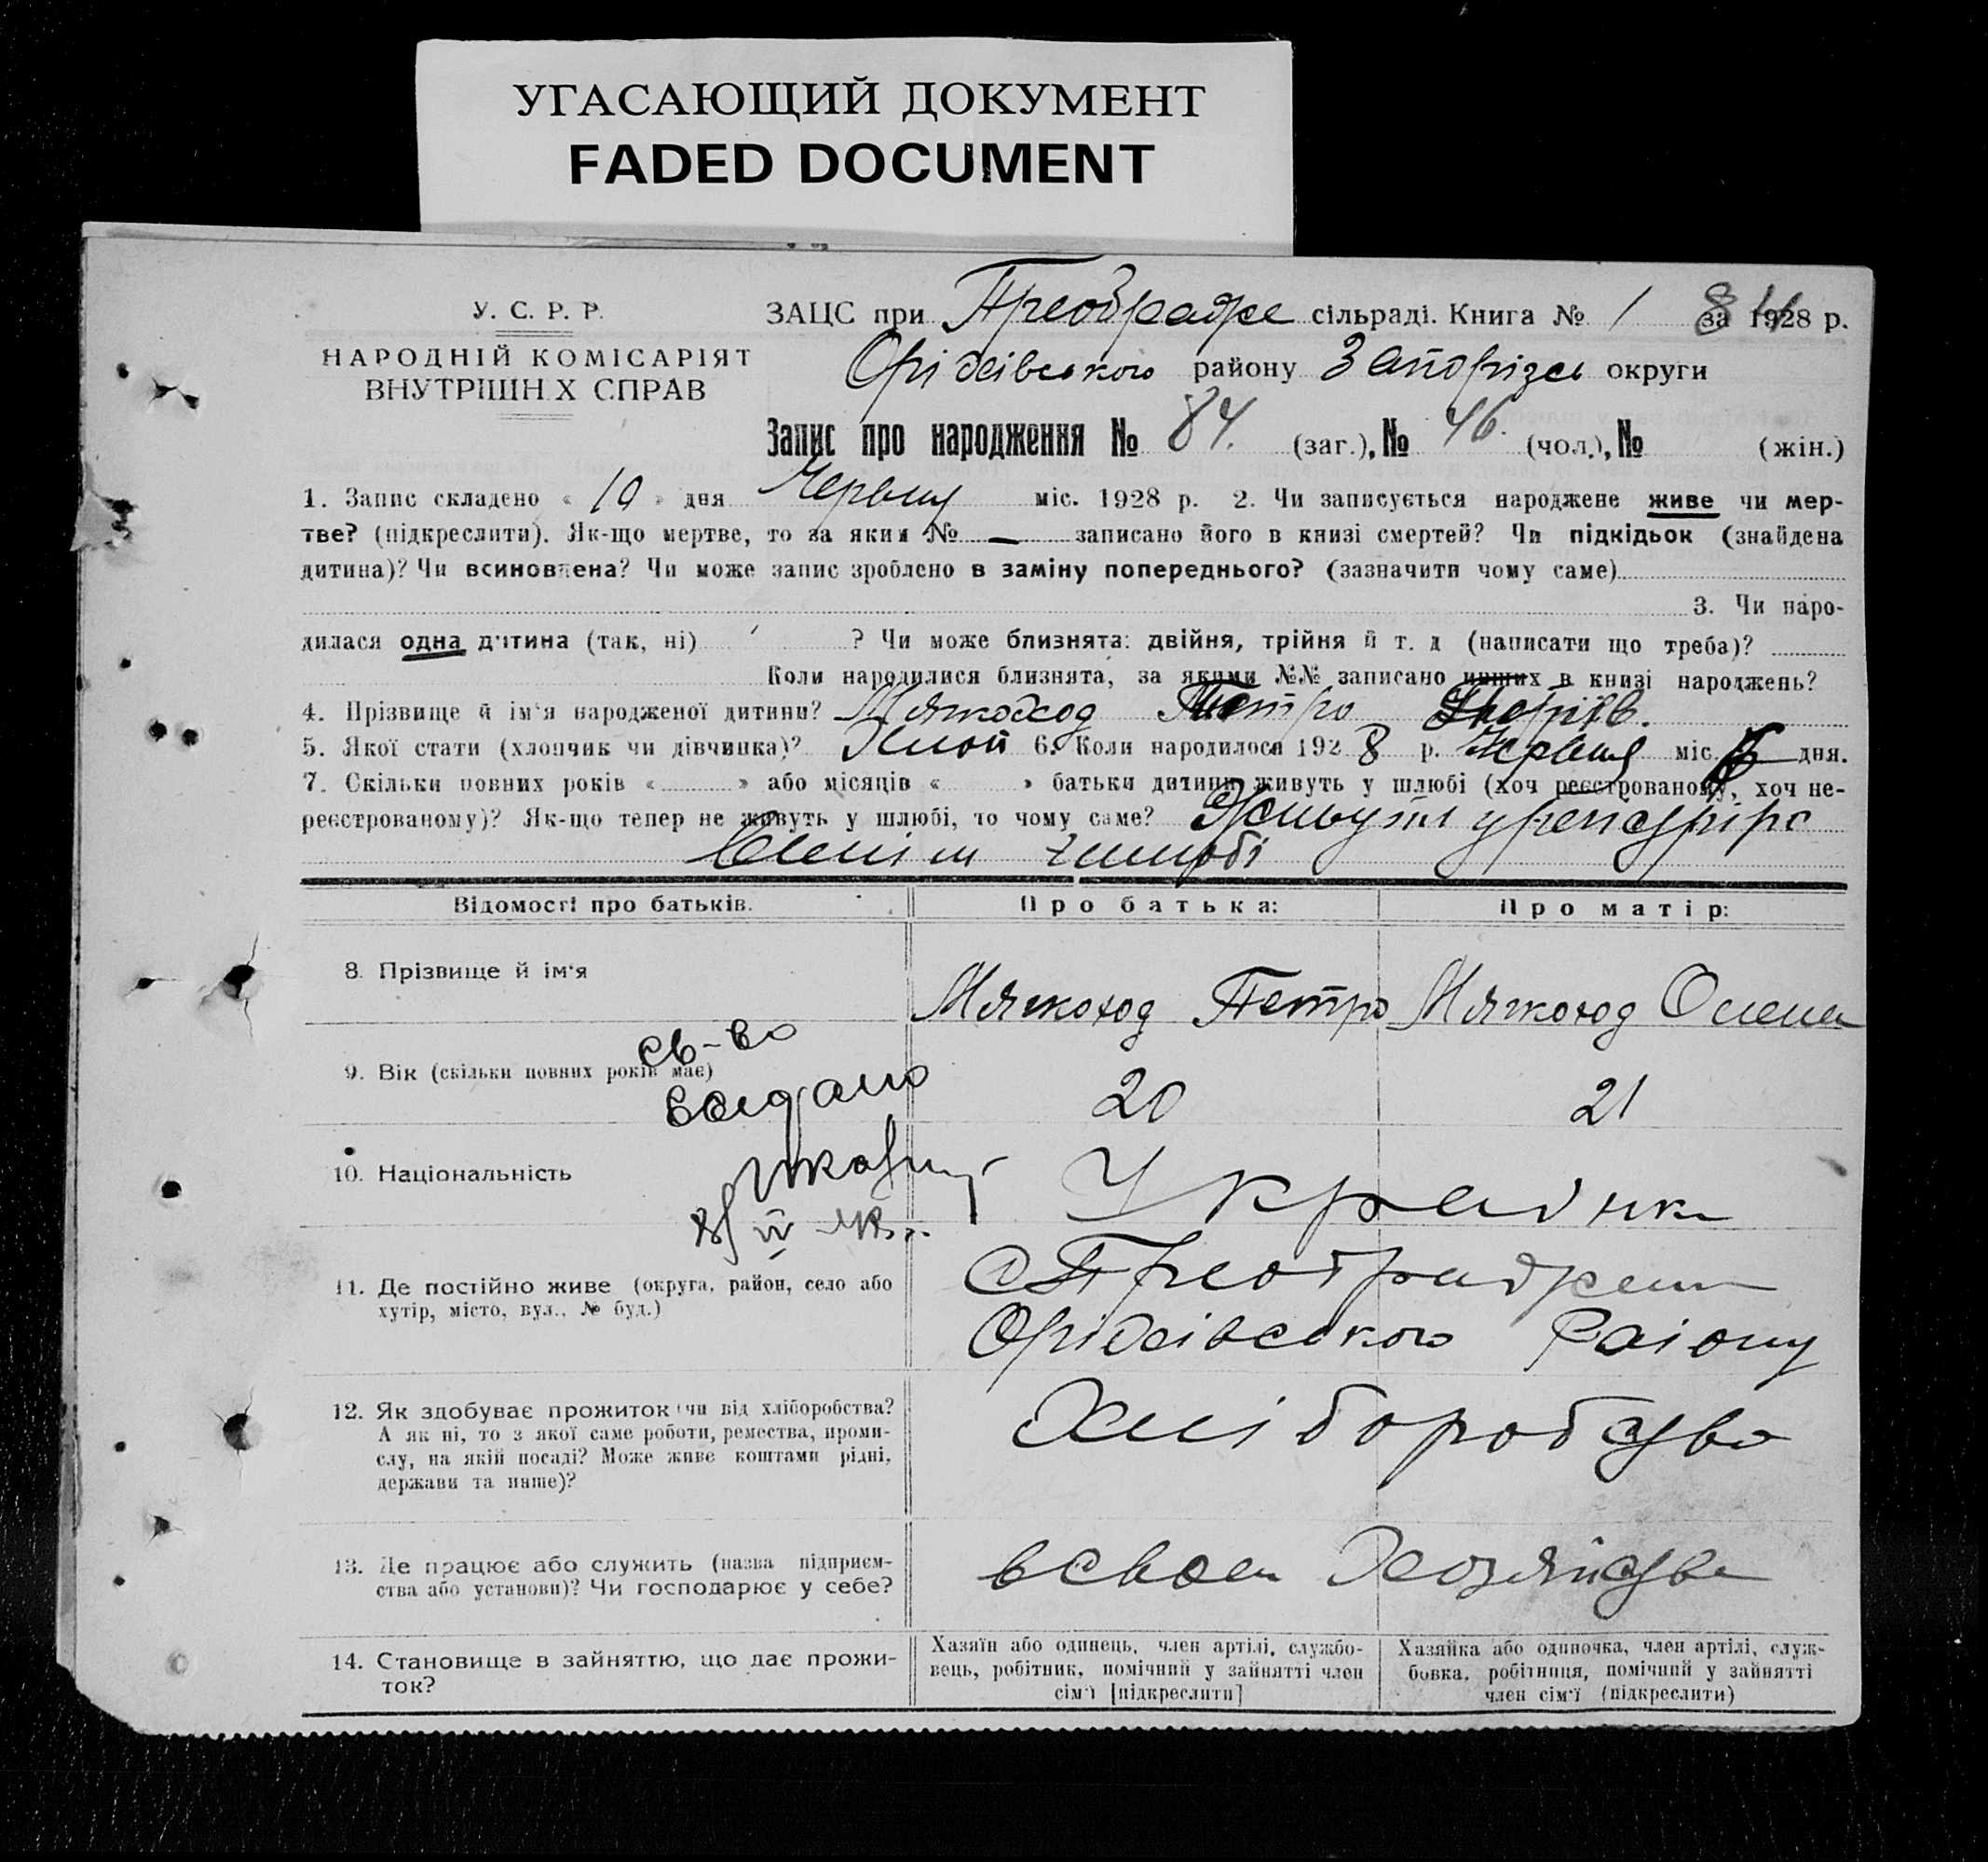 УГАСАЮЩИЙ ДОКУМЕНТ
FADED DOCUMENT
У. С. Р. Р.
НАРОДНІЙ КОМІСАРІЯТ
ВНУТРІШН Х СПРАВ
ЗАЦС при Преображе сільраді. Книга № 1 за 1928 р.
84
Оріхівського району Запорізь округи
Запис про народження № 84. (заг.), № 46. (чол.), № (жін.)
1. Запис складено « 10 » дня Червня міс. 1928 р. 2. Чи записується народжене живе чи мер-
тве? (підкреслити). Як-що мертве, то за яким № — записано його в книзі смертей? Чи підкідьок (знайдена
дитина)? Чи всиновлена? Чи може запис зроблено в заміну попереднього? (зазначити чому саме)
3. Чи наро-
дилася одна дитина (так, ні) ? Чи може близнята: двійня, трійня й т. д (написати що треба)?
Коли народилися близнята, за якими №№ записано инших в книзі народжень?
4. Прізвище й ім'я народженої дитини? Мягкоход Петро
5. Якої стати (хлопчик чи дівчинка)? Хлоп 6. Коли народилося 1928 р. Червня міс. дня.
7. Скільки повних років « » або місяців « » батьки дитини живуть у шлюбі (хоч реєстрованому, хоч не-
реєстрованому)? Як-що тепер не живуть у шлюбі, то чому саме? Живуть у
шлюбі
Відомості про батьків. Про батька: Про матір:
8. Прізвище й ім'я Мягкоход Петро Мягкоход Олена
св-во
9. Вік (скільки повних років має) 20 21
выдано
10. Національність Україн
11. Де постійно живе (округа, район, село або
хутір, місто, вул., № буд.)
с Преображен
Оріхівського Району
12. Як здобуває прожиток (чи від хліборобства?
А як ні, то з якої саме роботи, ремества, проми-
слу, на якій посаді? Може живе коштами рідні,
держави та инше)?
Хліборобство
13. Де працює або служить (назва підприєм-
ства або установи)? Чи господарює у себе?
в своем Хозяйстве
14. Становище в зайняттю, що дає прожи-
ток?
Хазяїн або одинець, член артілі, службо-
вець, робітник, помічний у зайнятті член
сім'ї [підкреслити]
Хазяйка або одиночка, член артілі, служ-
бовка, робітниця, помічний у зайнятті
член сім'ї (підкреслити)